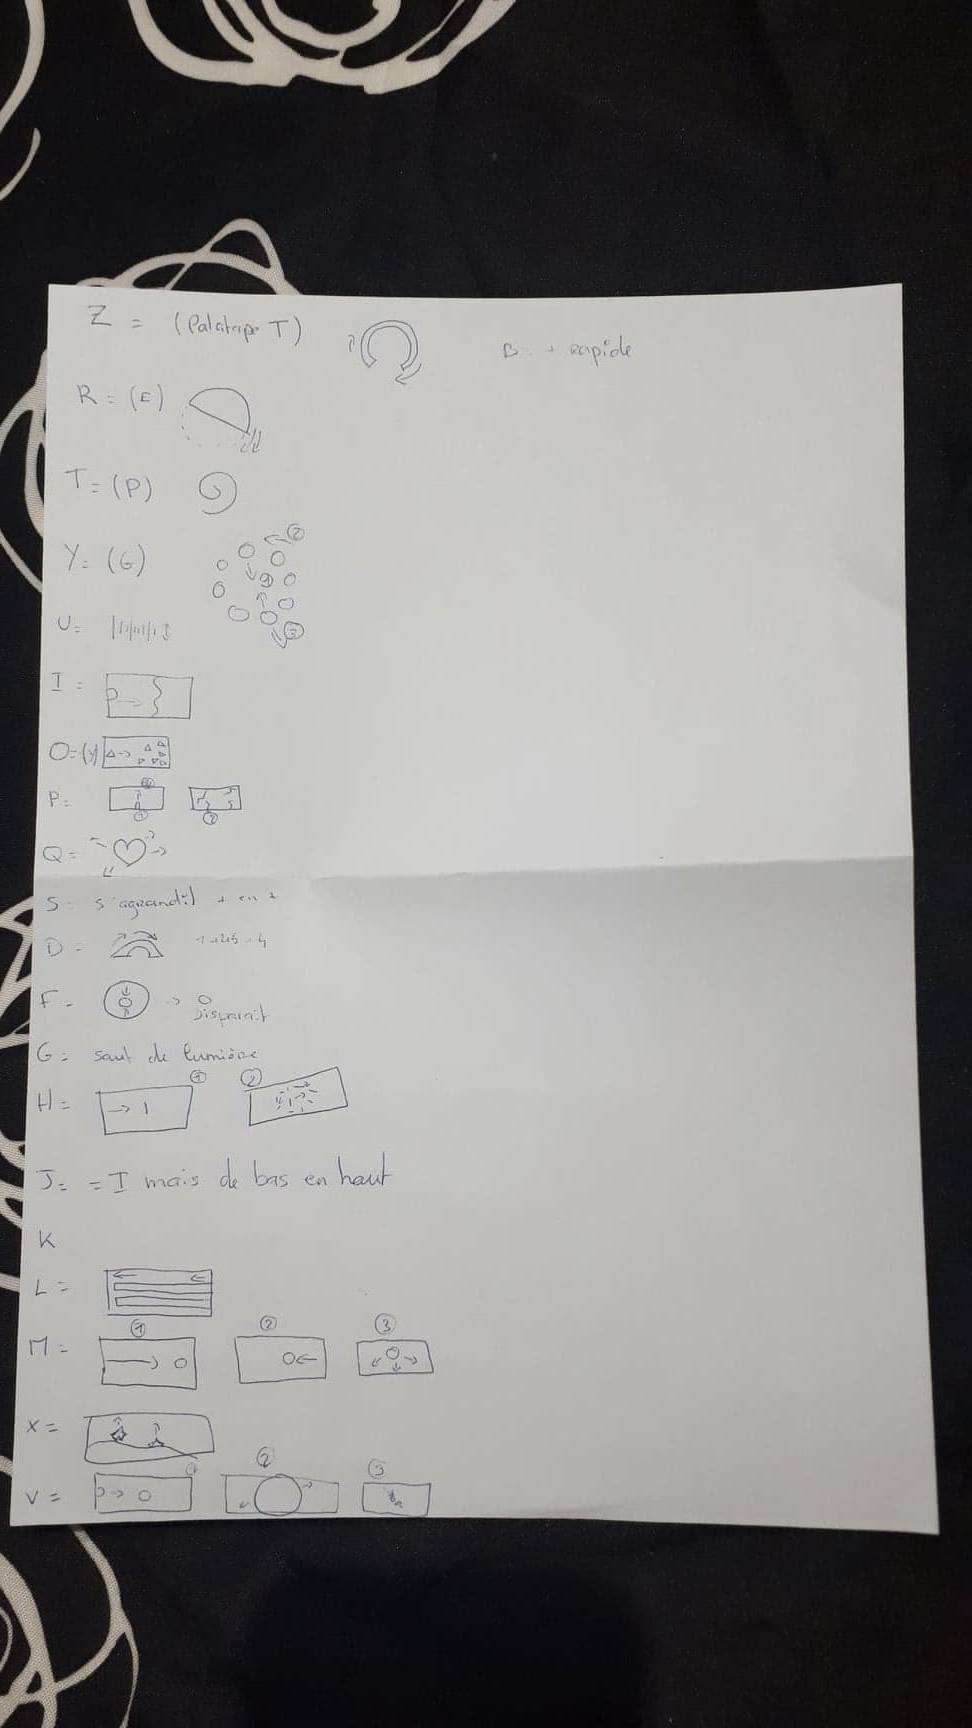 Z = (Palatape T)
B = + rapide
R = (E)
T = (P)
Y = (G)
②
③
U =
I =
O = (y)
P =
①
②
Q =
S = s'agrandit + en +
D =
F =
Disparait
G = saut de lumière
H =
①
②
J = = I mais de bas en haut
K
L =
M =
①
②
③
X =
V =
①
②
③